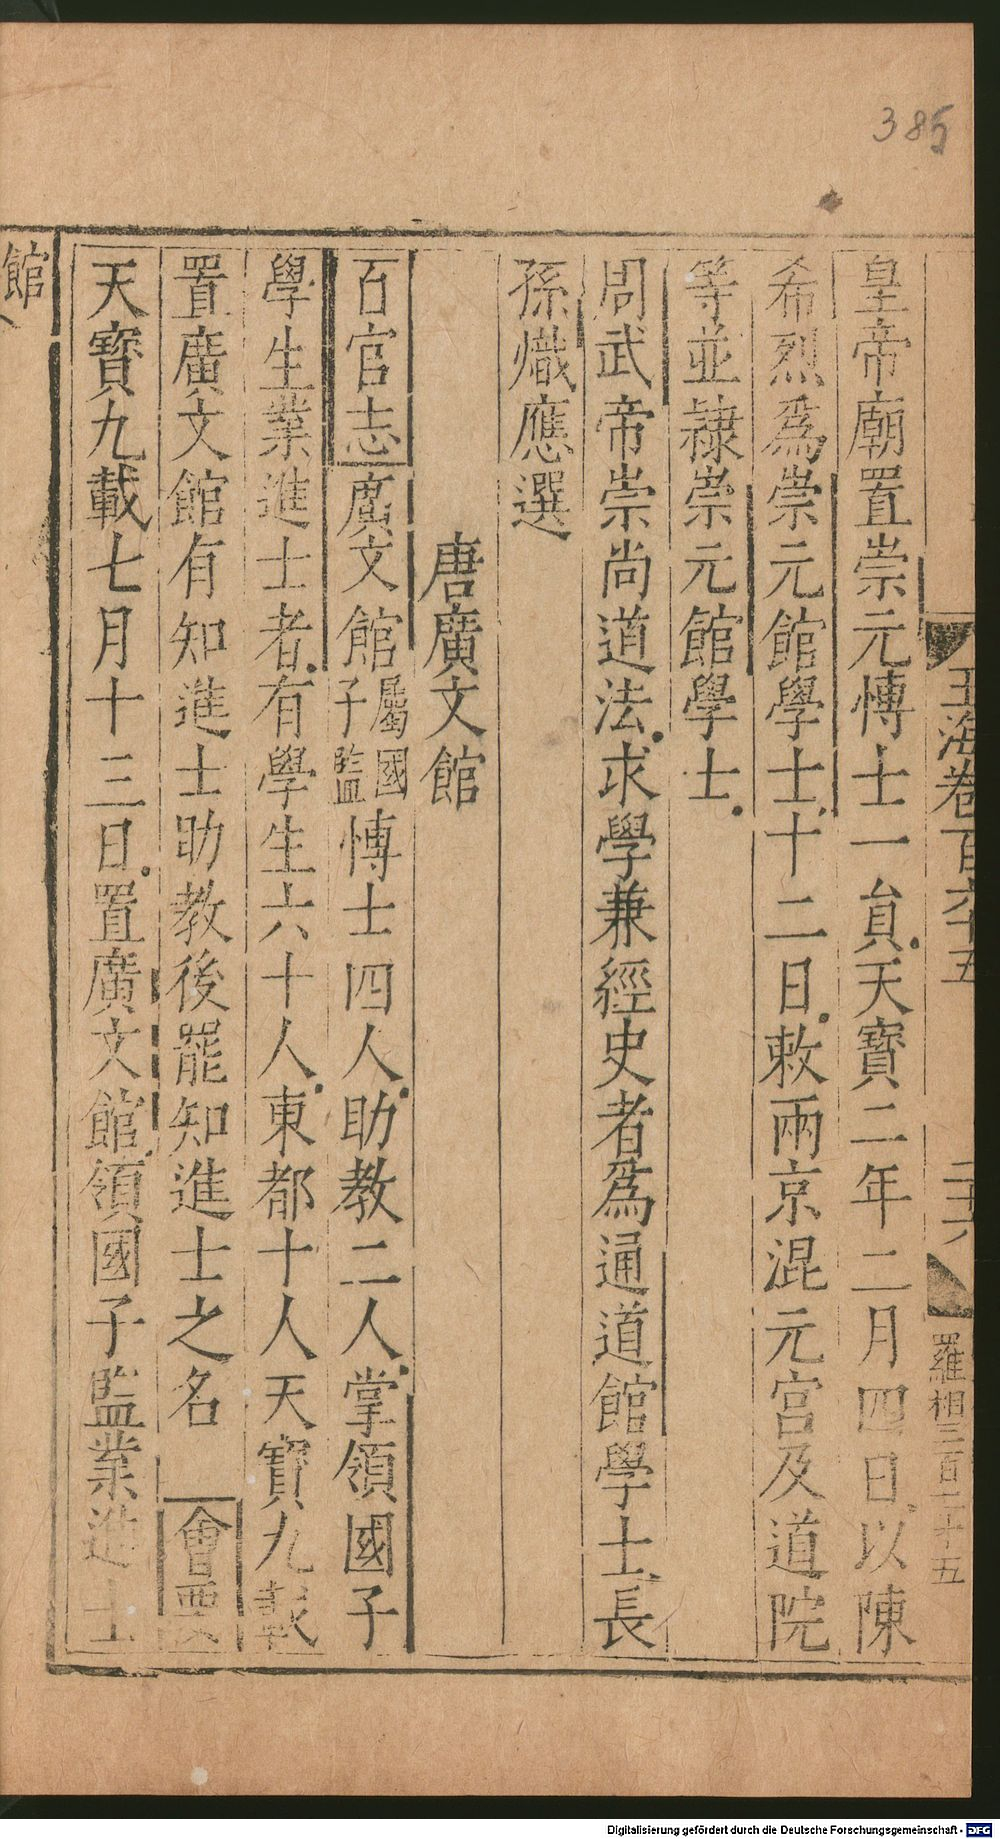 385
玉海卷百六十五
二十六
羅相三百二十五
皇帝廟置崇元博士一員天寶二年二月四日以陳
希烈爲崇元館學士十二日敕兩京混元宫及道院
等並隷崇元館學士
周武帝崇尚道法求學兼經史者爲通道館學士長
孫熾應選
唐廣文館
百官志廣文館屬國子監博士四人助教二人掌領國子
學生業進士者有學生六十人東都十人天寶九載
置廣文館有知進士助教後罷知進士之名 會要
天寶九載七月十三日置廣文館領國子監業進士
館
Digitalisierung gefördert durch die Deutsche Forschungsgemeinschaft - DFG